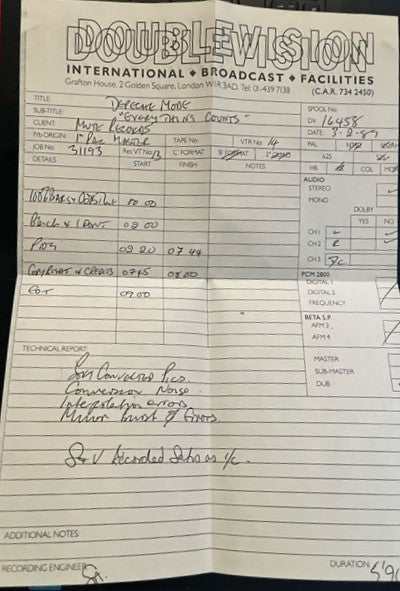 DOUBLEVISION
INTERNATIONAL ◆ BROADCAST ◆ FACILITIES
Grafton House, 2 Golden Square, London W1R 3AD. Tel: 01-439 7138 (C.A.R. 734 2450)
TITLE: DEPECHE MODE
SUB-TITLE: "EVERYTHING COUNTS"
CLIENT MUTE RECORDS
P/b ORIGIN: MASTER TAPE No: VTR No: 14
JOB No: 31193 Rec VT No: 13 'C' FORMAT B FORMAT
SPOOL No:
DV 16458
DATE: 3-2-89
PAL
625
HB COL MON
DETAILS START FINISH NOTES
00.00
Black & 02.00
PROG 02 20 07 44
& CREDITS 0745 08.00
EBT 09.00
AUDIO
STEREO
MONO
DOLBY
YES NO
CH 1 L
CH 2 R
CH 3
PCM 2800
DIGITAL 1
DIGITAL 2
FREQUENCY
BETA S.P.
AFM 3
AFM 4
MASTER
SUB-MASTER
DUB
TECHNICAL REPORT
Converted Pics.
Conversion Noise.
Interpolation errors
Minor burst of Errors.
S & V Recorded Satis as i/c.
ADDITIONAL NOTES
RECORDING ENGINEER
DURATION: 5'90